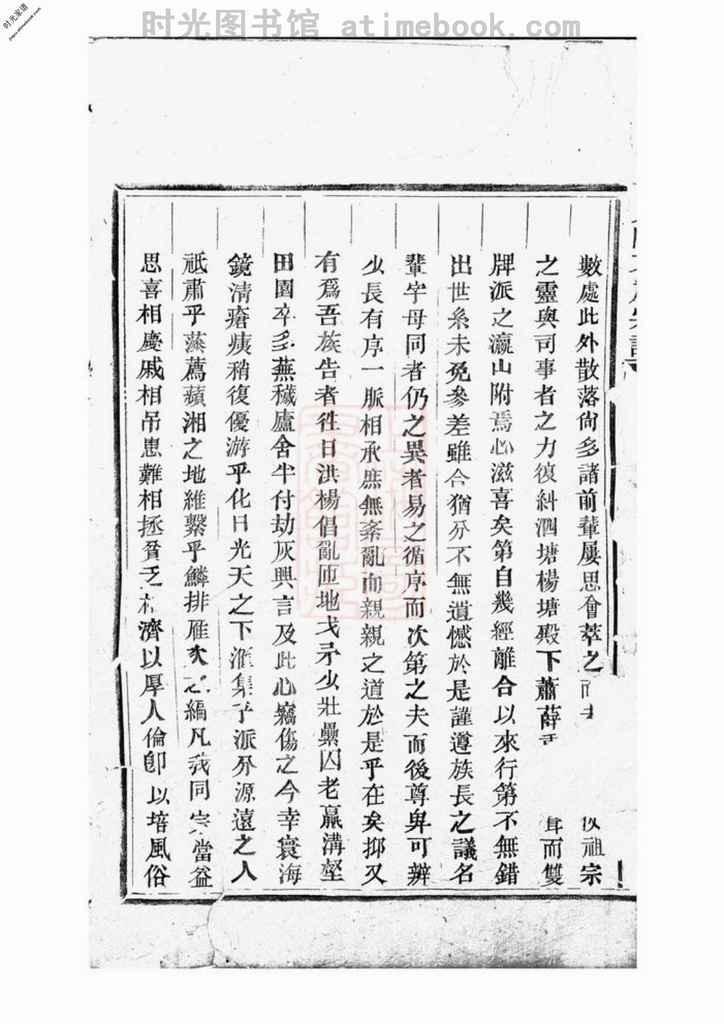 时光图书馆 atimebook.com
时光家谱
數處此外散落尙多諸前輩屢思會萃之而 祖宗
之靈與司事者之力復糾泗塘楊塘殿下蕭薛 而雙
牌派之瀛山附焉心滋喜矣第自幾經離合以來行第不無錯
出世系未免參差雖合猶分不無遺憾於是謹遵族長之議名
輩字母同者仍之異者易之循序而次第之夫而後尊卑可辨
少長有序一脈相承庶無紊亂而親親之道於是乎在矣抑又
有爲吾族告者徃日洪楊倡亂匝地戈矛少壯纍囚老羸溝壑
田園卒多蕪穢廬舍半付劫灰興言及此心竊傷之今幸寰海
鏡清瘡痍稍復優游乎化日光天之下滙集乎派分源遠之人
祗肅乎蒸薦蘋湘之地維繫乎鱗排雁次之編凡我同宗當益
思喜相慶戚相吊患難相拯貧乏相濟以厚人倫卽以培風俗